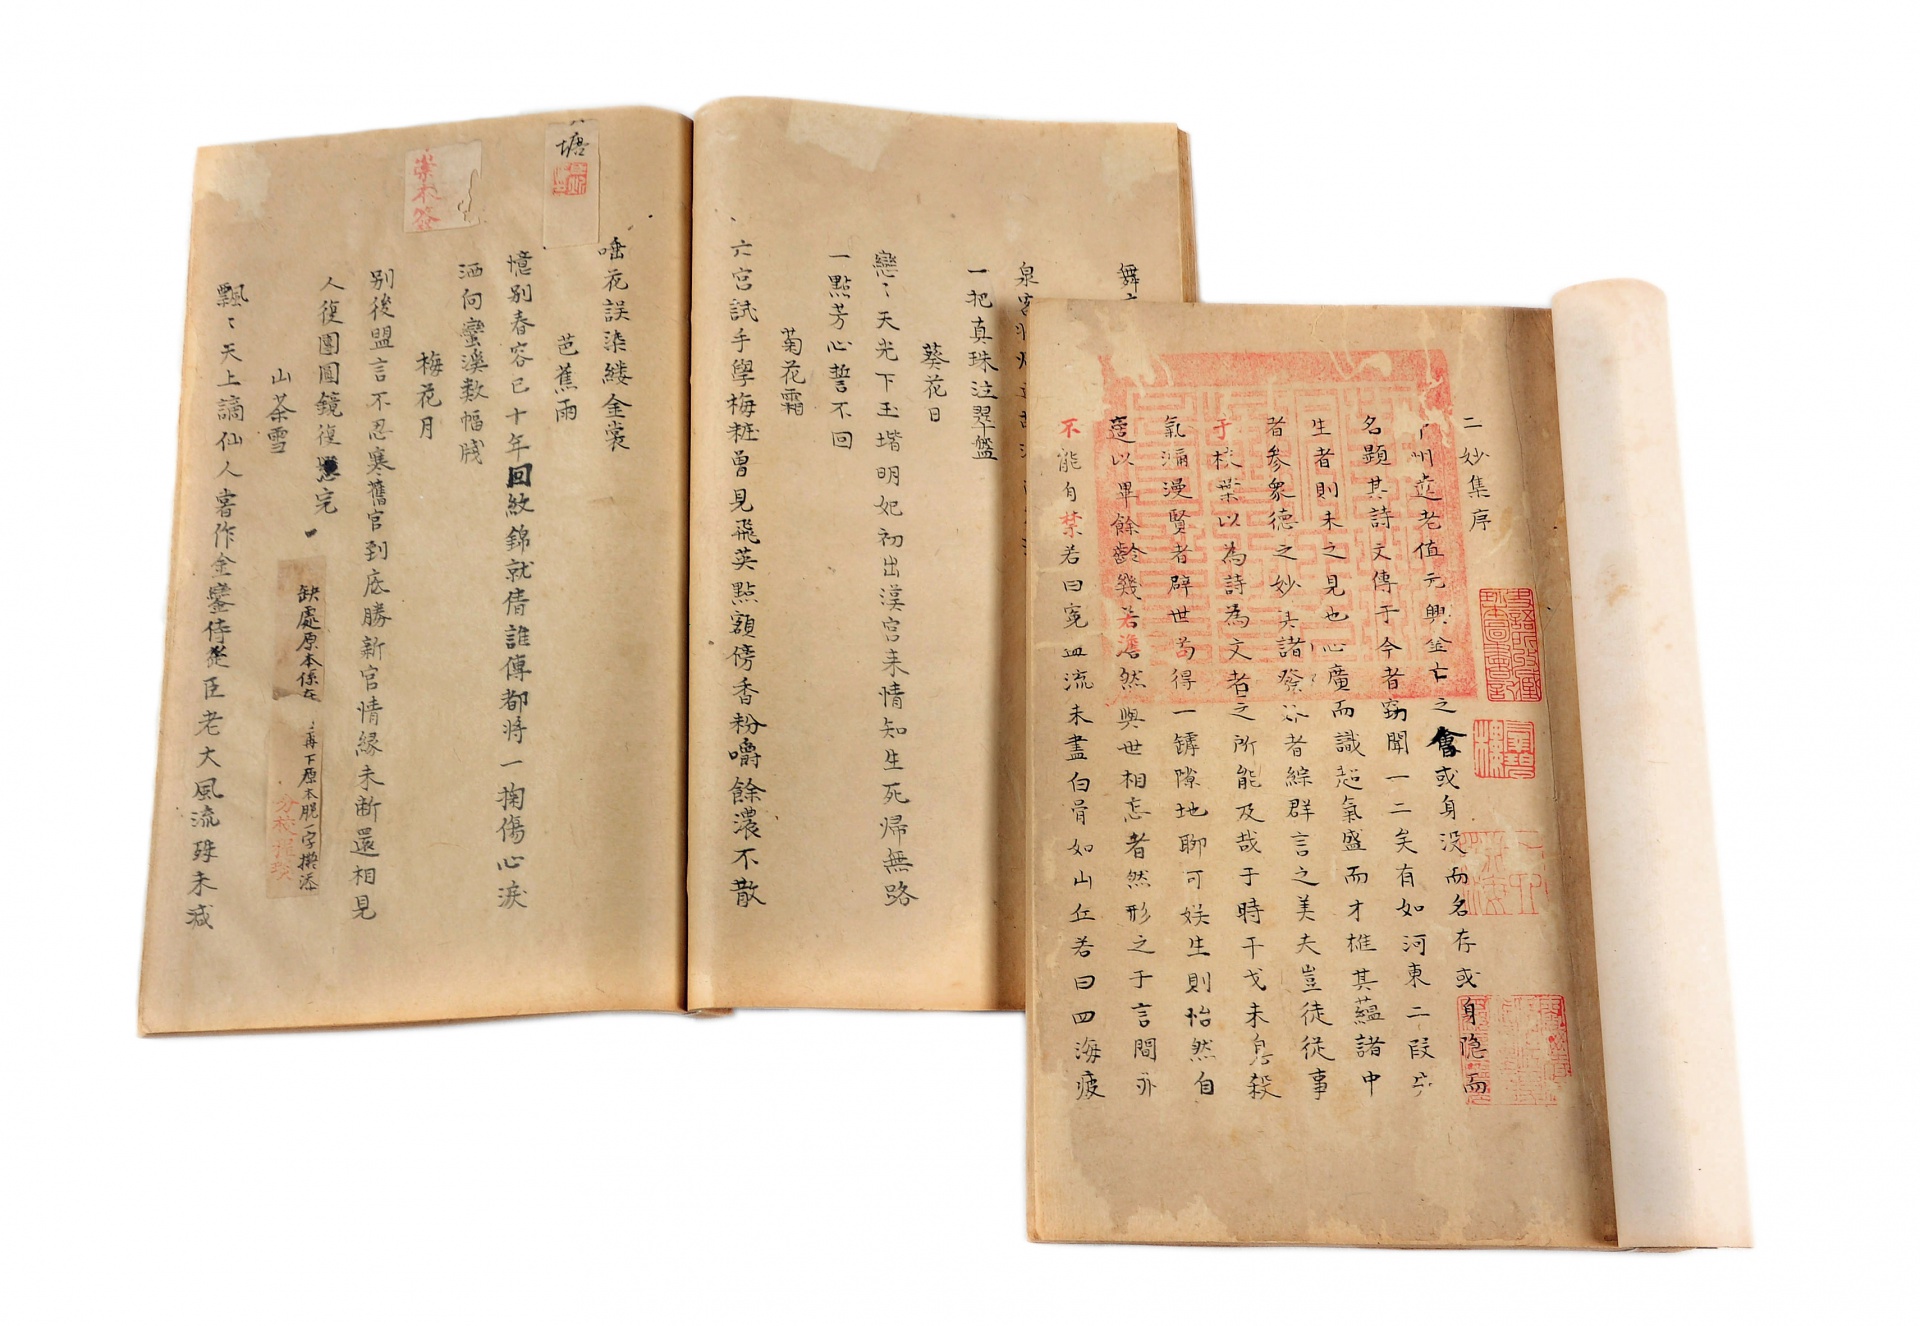 二妙集序
州遗老值元興金亡之會或身没而名存或身隐而
名顯其詩文傳于今者窃聞一二矣有如河東二段
生者則未之見也心廣而識超氣盛而才雄其藴諸中
者参衆德之妙其諸發者綜群言之美夫豈徒從事
于枝葉以為詩為文者之所能及哉于時干戈未息殺
氣瀰漫賢者辟世苟得一罅隙地聊可娱生則怡然自
以畢餘齡幾若澹然與世相忘者然形之于言間亦
不能自禁若曰冤血流未盡白骨如山丘若曰四海疲
舞
泉客
一把真珠注翠盤
葵花日
戀〻天光下玉堦明妃初出漢宫来情知生死帰無路
一點芳心誓不回
菊花霜
六宫試手學梅粧曾見飛英點額傍香粉嚼餘濃不散
唾花誤染縷金裳
芭蕉雨
憶别春容已十年回紋錦就倩誰傳都将一掬傷心淚
洒向蠻溪数幅牋
梅花月
别後盟言不忍寒舊官到底勝新官情縁未断還相見
人復團圓鏡復完
山茶雪
飄〻天上謫仙人嘗作金鑾侍從臣老大風流殊未减
塘
缺處原本係在
再下原本脱一字擬添
分校程琰